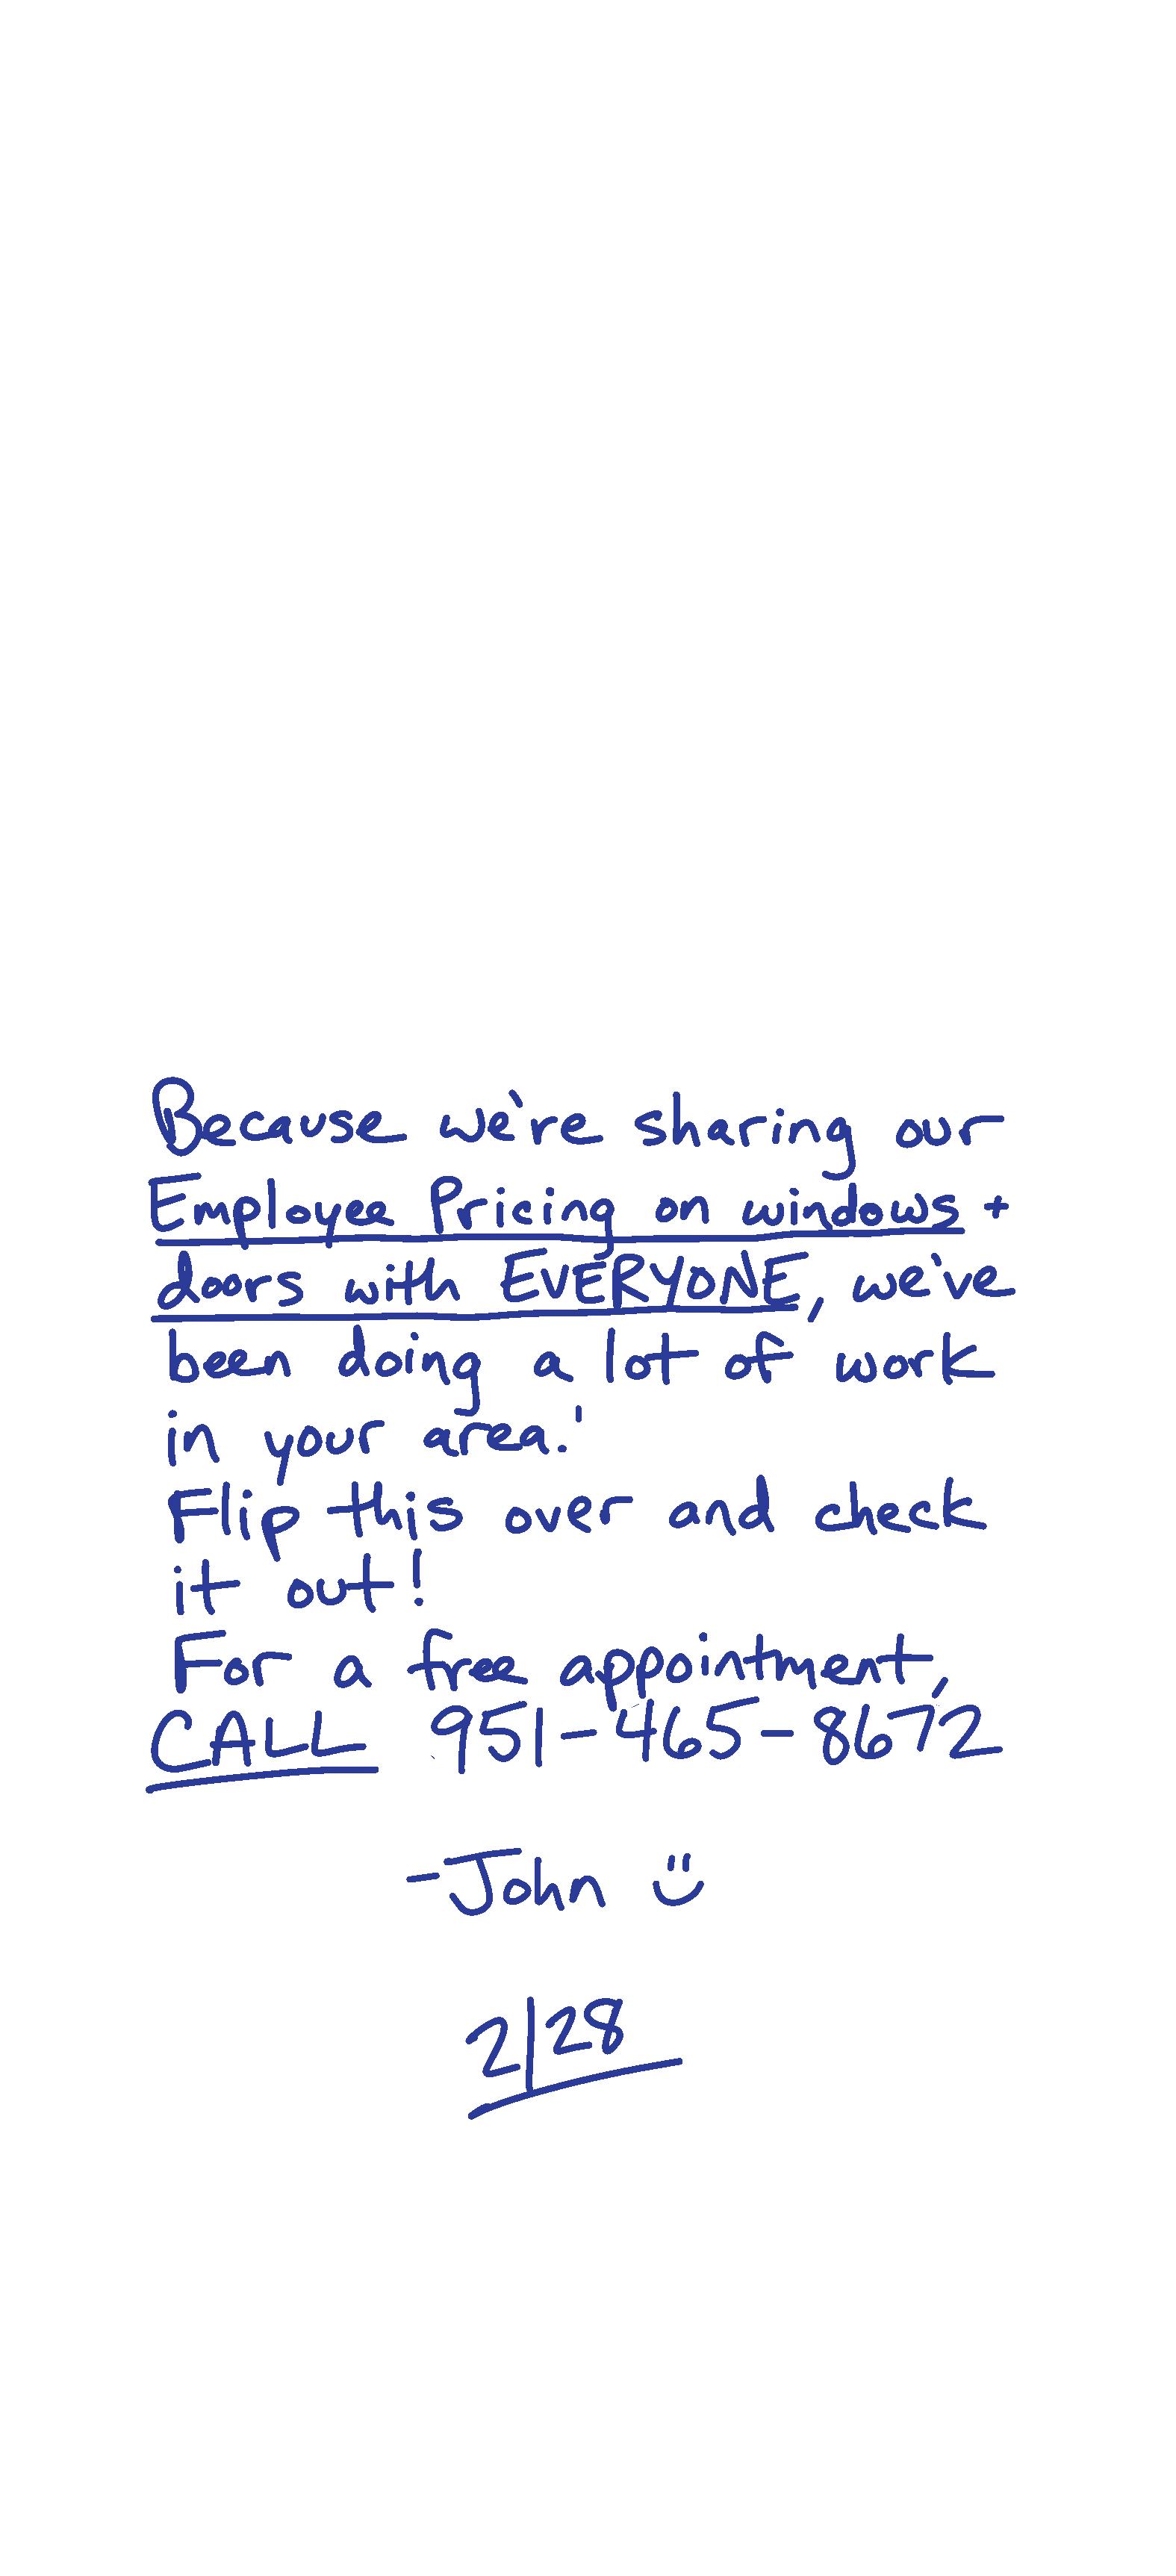 Because we're sharing our
Employee Pricing on windows +
doors with EVERYONE, we've
been doing a lot of work
in your area.¹
Flip this over and check
it out!
For a free appointment,
CALL 951-465-8672
-John
2/28